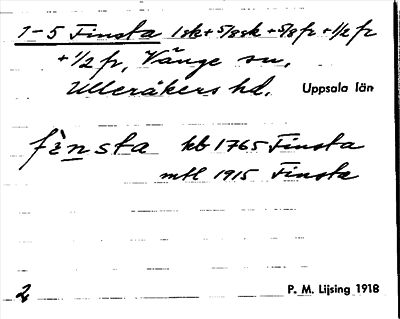 1-5 Finsta 1 sk + 5/8 sk + 5/8 fr + 1/2 fr
+ 1/2 fr, Vänge sn,
Ulleråkers hd. Uppsala län
fènsta kb 1765 Finsta
mtl 1915 Finsta
2 P. M. Lijsing 1918